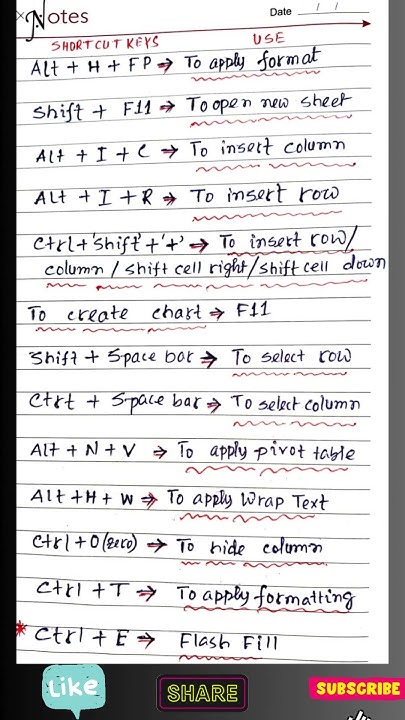 Notes
Date / /
SHORTCUT KEYS USE
Alt + H + FP ⇒ To apply format
Shift + F11 ⇒ To open new sheet
Alt + I + C ⇒ To insert column
Alt + I + R ⇒ To insert row
Ctrl + 'Shift' + '+' ⇒ To insert row/
column / shift cell right / shift cell down
To create chart ⇒ F11
Shift + Space bar ⇒ To select row
Ctrt + Space bar ⇒ To select column
Alt + N + V ⇒ To apply pivot table
Alt + H + W ⇒ To apply Wrap Text
Ctrl + 0 (zero) ⇒ To hide column
Ctrl + T ⇒ To apply formatting
* Ctrl + E ⇒ Flash Fill
Like SHARE SUBSCRIBE